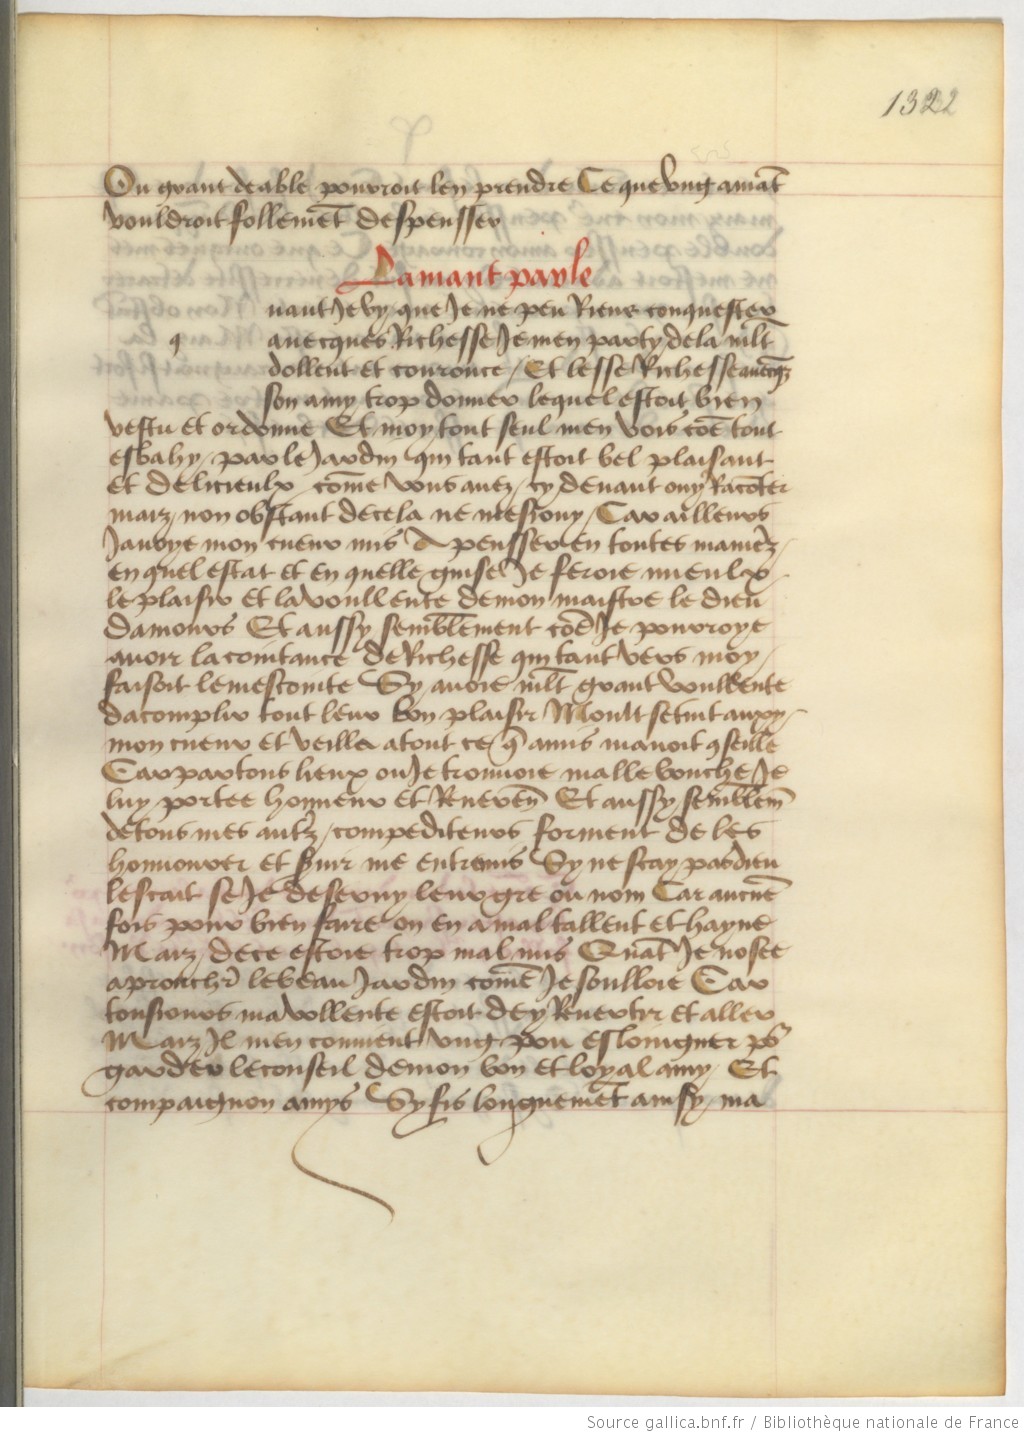 1322
Ou grant deable pourroit len prendre Ce que ung amāt
vouldroit follemēt despensser
Lamant parle
q
uant Je vy que Je ne peu Riens conquester
auecques Richesse Je men party de la mlt
dollent et cource / Et lesse Richesse auecqz
son amy trop donner lequel estoit bien
vestu et ordonne Et moy tout seul men vois cōe tout
esbahy / par le Jardin qui tant estoit bel plaisant
et delicieulx cōme vous auez / cy deuant ouy Racōter
marz / non obstant de cela ne mesiouy / Car ailleurs
Jauoye mon cueur mis A pensser en toutes manierz /
en quel estat et en quelle guise Je feroie mieulx
le plaisir et la voullente de mon maistre le dieu
damours Et aussy semblēment cōe Je pourroye
auoir lacointance de Richesse qui tant vers moy /
faisoit le mescointe Sy auoie mlt grant voullente
dacomplir tout leur bon plaisir Moult se tint auxy /
mon cueur et veilla a tout ce q̄ amis mauoit 9seille
Car par tous lieux ou Je trouuoie malle bouche Je
luy portee honneur et Reuerēn Et aussy semblēm
de tous mes autrz / compediteurs forment de les
honnourer et seruir me entremis Sy ne scay pas dieu
lescait se Je deseruy leur gre ou nom Car aucuē
fois pour bien faire on en a mal tallent et hayne
Marz / de ce estoie trop mal mis Quāt Je nosee
aproucher le beau Jardin comē Je soulloie Car
tousiours ma vollente estoit de y Reuertir et aller
Marz Jl men conuient ung pou eslongner pō
garder le conseil de mon bon et loyal amy / Et
compaignon amys Sy fis longuemēt ainsy / ma
Source gallica.bnf.fr / Bibliothèque nationale de France